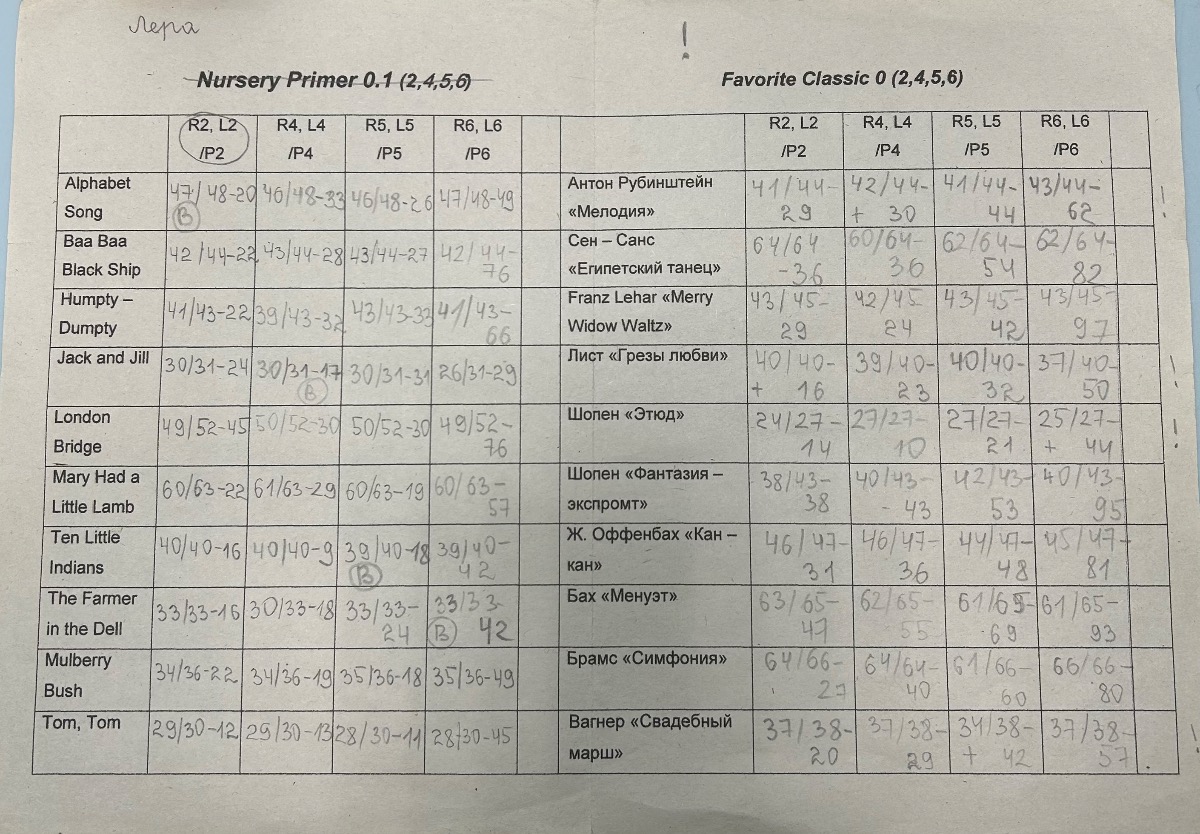 Лера
!
Nursery Primer 0.1 (2,4,5,6)
R2, L2 /P2 R4, L4 /P4 R5, L5 /P5 R6, L6 /P6
Alphabet Song 47/48-20 В 46/48-33 46/48-26 47/48-49
Baa Baa Black Ship 42/44-22 43/44-28 43/44-27 42/44-76
Humpty – Dumpty 41/43-22 39/43-32 43/43-33 41/43-66
Jack and Jill 30/31-24 30/31-17 В 30/31-31 26/31-29
London Bridge 49/52-45 50/52-30 50/52-30 49/52-76
Mary Had a Little Lamb 60/63-22 61/63-29 60/63-19 60/63-57
Ten Little Indians 40/40-16 40/40-9 39/40-18 В 39/40-42
The Farmer in the Dell 33/33-16 30/33-18 33/33-24 33/33-42 В
Mulberry Bush 34/36-22 34/36-19 35/36-18 35/36-49
Tom, Tom 29/30-12 29/30-13 28/30-11 28/30-45
Favorite Classic 0 (2,4,5,6)
R2, L2 /P2 R4, L4 /P4 R5, L5 /P5 R6, L6 /P6
Антон Рубинштейн «Мелодия» 41/44-29 42/44-+ 30 41/44-44 43/44-62 !
Сен – Санс «Египетский танец» 64/64-36 60/64-36 62/64-54 62/64-82
Franz Lehar «Merry Widow Waltz» 43/45-29 42/45 24 43/45-42 43/45-97
Лист «Грезы любви» 40/40-+ 16 39/40-23 40/40-32 37/40-50 !
Шопен «Этюд» 24/27-14 27/27-10 27/27-21 25/27-+ 44 !
Шопен «Фантазия – экспромт» 38/43-38 40/43-43 42/43-53 40/43-95
Ж. Оффенбах «Кан – кан» 46/47-31 46/47-36 44/47-48 45/47-81
Бах «Менуэт» 63/65-47 62/65-55 61/65-69 61/65-93
Брамс «Симфония» 64/66-27 64/64-40 61/66-60 66/66-80
Вагнер «Свадебный марш» 37/38-20 37/38-29 34/38-+ 42 37/38-57 !